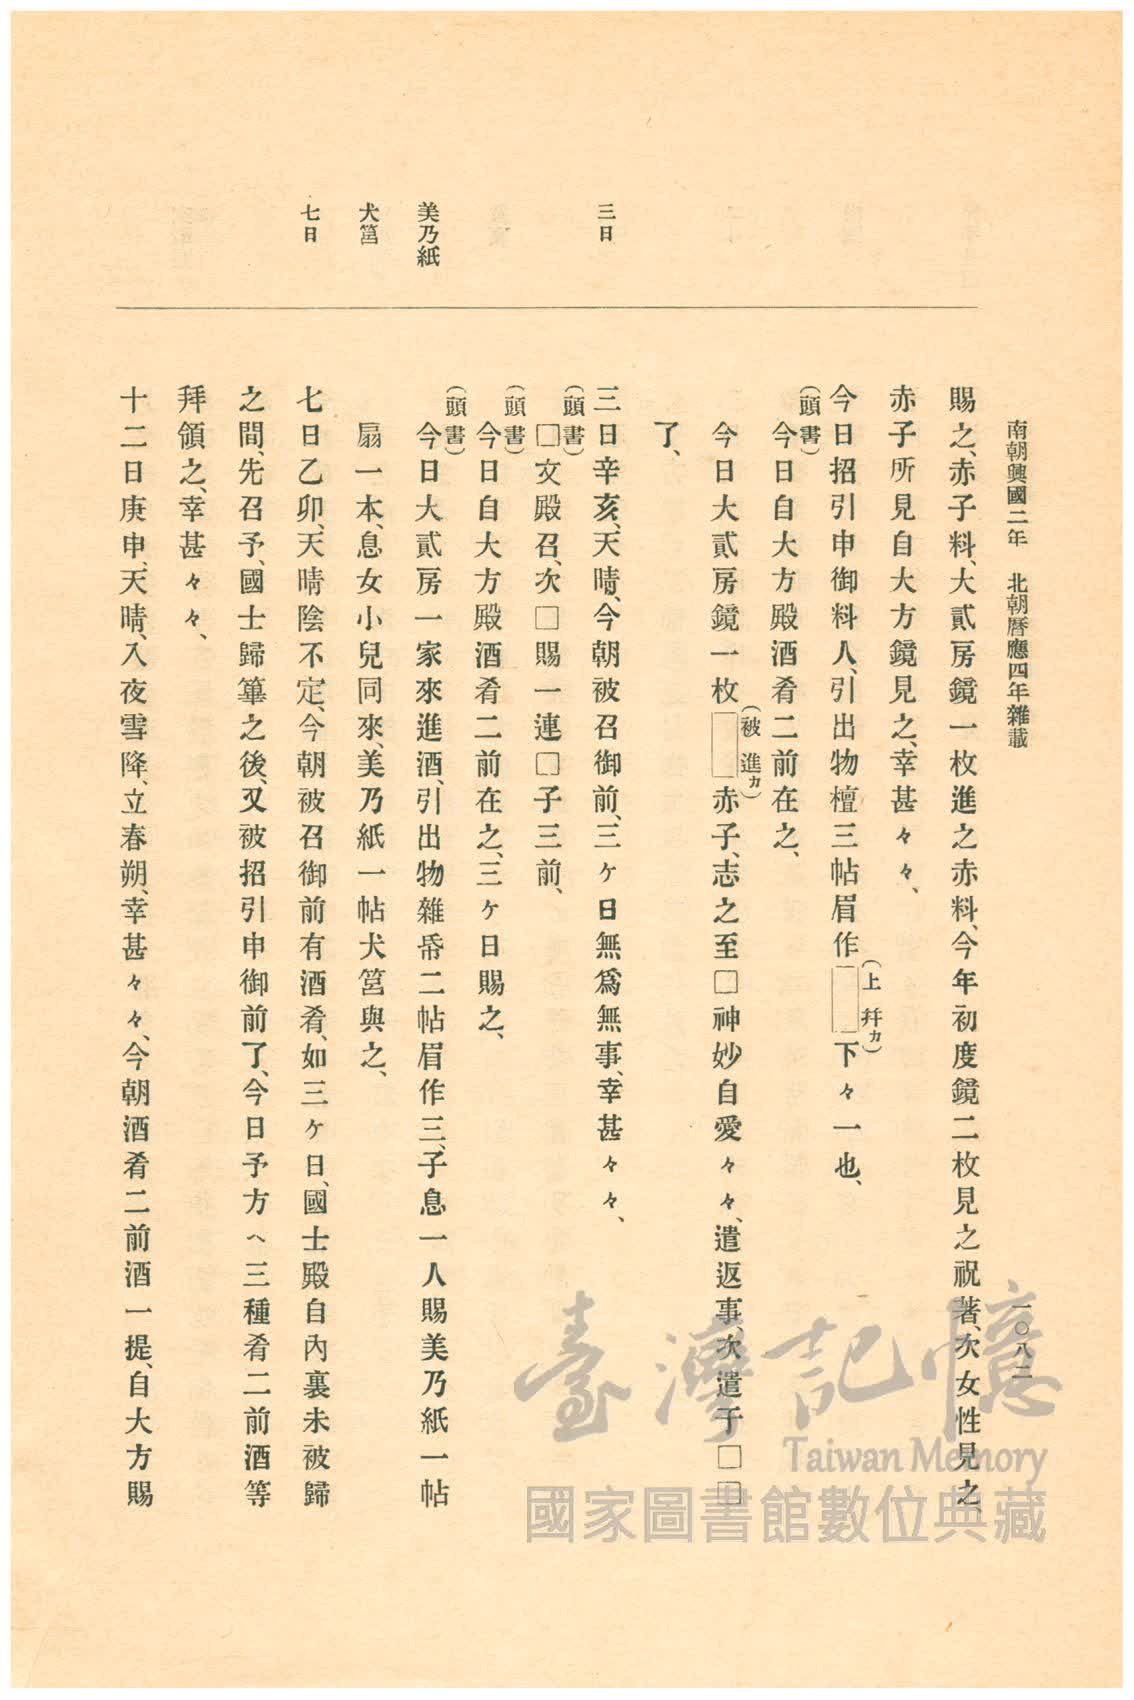 南朝興國二年 北朝曆應四年雜載
一〇八二
賜之、赤子料、大貳房鏡一枚進之赤料、今年初度鏡二枚見之祝著、次女性見之、
赤子所見自大方鏡見之、幸甚々々、
今日招引申御料人、引出物檀三帖眉作□(上幷カ)下々一也、
(頭書)
今日自大方殿酒肴二前在之、
今日大貳房鏡一枚□(被進カ)赤子、志之至□神妙自愛々々、遣返事、次遣于□□
了、
三日
三日辛亥、天晴、今朝被召御前、三ケ日無爲無事、幸甚々々、
(頭書)
□文殿召、次□賜一連□子三前、
(頭書)
今日自大方殿酒肴二前在之、三ケ日賜之、
美乃紙
(頭書)
今日大貳房一家來進酒、引出物雜帋二帖眉作三、子息一人賜美乃紙一帖
犬筥
扇一本、息女小兒同來、美乃紙一帖犬筥與之、
七日
七日乙卯、天晴陰不定、今朝被召御前有酒肴、如三ケ日、國士殿自內裏未被歸
之間、先召予、國士歸篳之後、又被招引申御前了、今日予方ヘ三種肴二前酒等
拜領之、幸甚々々、
十二日庚申、天晴、入夜雪降、立春朔、幸甚々々、今朝酒肴二前酒一提、自大方賜
臺灣記憶
Taiwan Memory
國家圖書館數位典藏